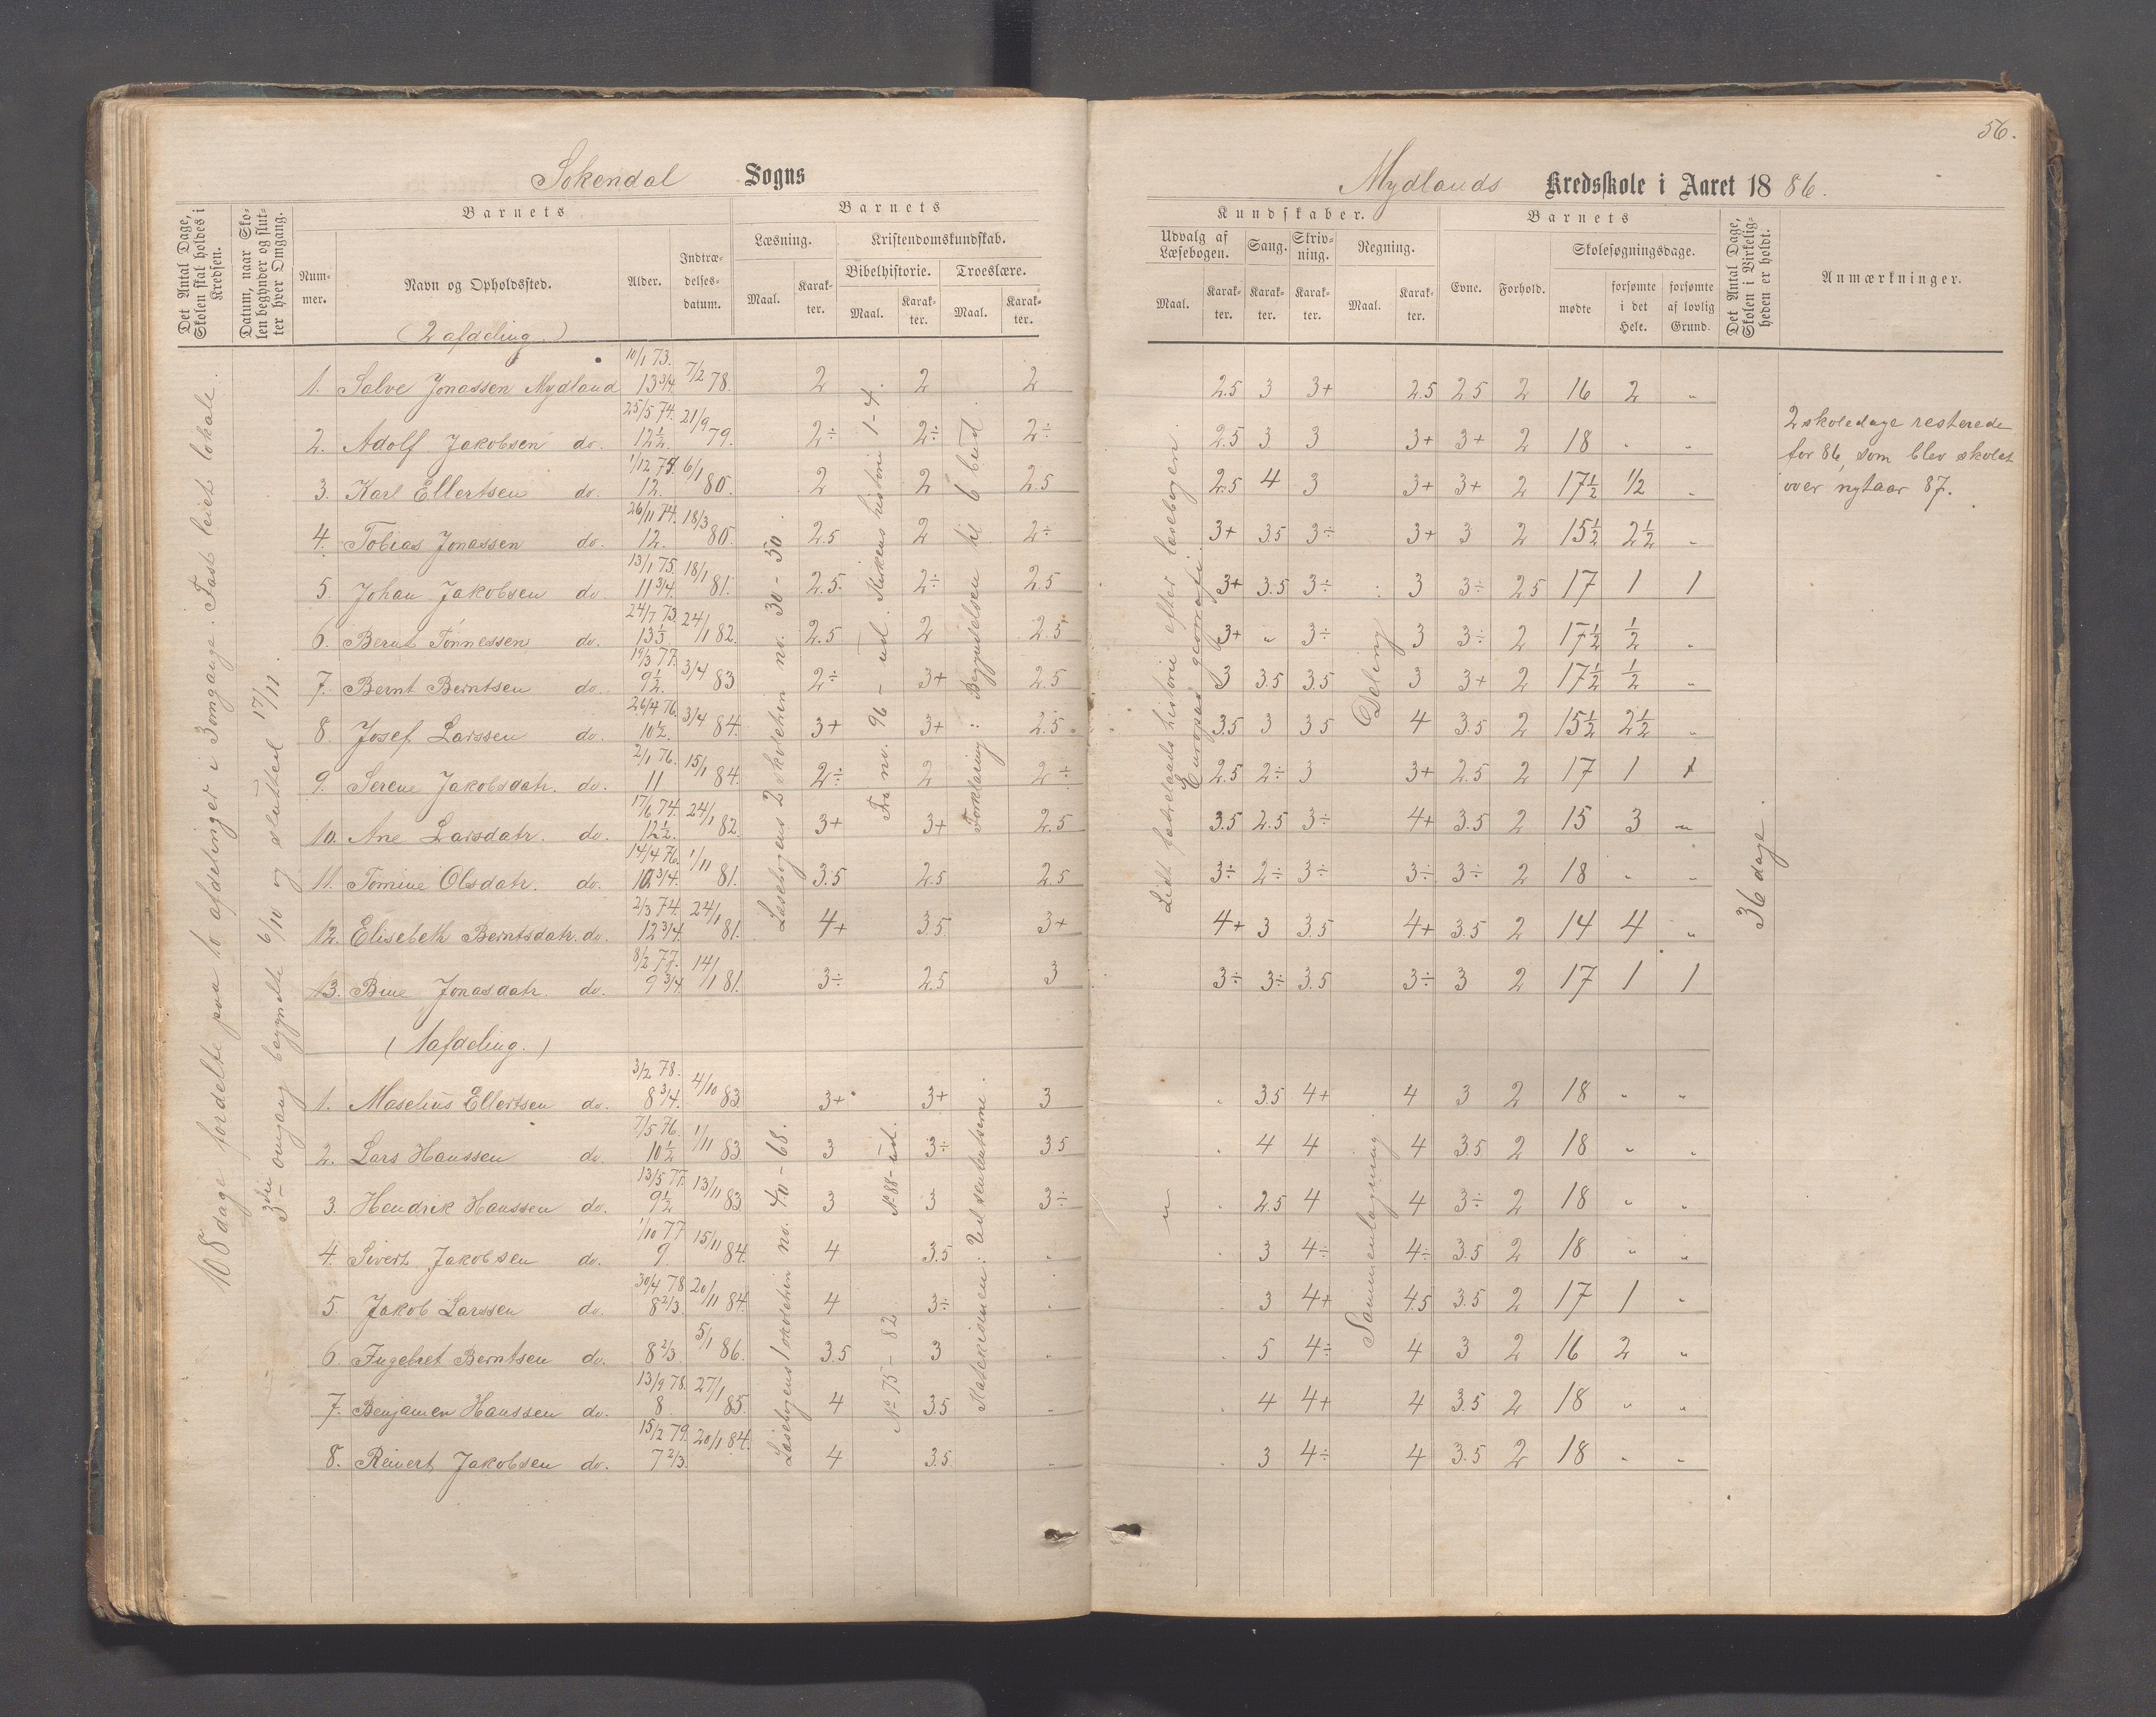 56.
Sokendal Sogns
Mydlands Kredsskole i Aaret 1886.
Det Antal Dage, Skolen skal holdes i Kredsen.
Datum, naar Skolen begynder og slutter hver Omgang.
Barnets
Nummer.
Navn og Opholdssted.
Alder.
Indtrædelsesdatum.
Barnets
Læsning.
Maal.
Karakter.
Kristendomskundskab.
Bibelhistorie.
Maal.
Karakter.
Troeslære.
Maal.
Karakter.
Kundskaber.
Udvalg af Læsebogen.
Maal.
Karakter.
Sang.
Karakter.
Skrivning.
Karakter.
Regning.
Maal.
Karakter.
Barnets
Evne.
Forhold.
Skolesøgningsdage.
mødte
forsømte i det Hele.
forsømte af lovlig Grund.
Det Antal Dage, Skolen i Virkeligheden er holdt.
Anmærkninger.
108 dage fordelte paa to afdelinger i 3 omgange. Fast leiet lokale.
3die omgang begyndte 6/10 og sluttede 17/11.
(2 afdeling.)
1. Salve Jonassen Mydland 10/1 73. 13 3/4. 7/2 78. 2 2 2 2.5 3 3+ 2.5 2.5 2 16 2 "
2. Adolf Jakobsen do. 25/5 74. 12 1/2. 21/9 79. 2÷ 2÷ 2÷ 2.5 3 3 3+ 3+ 2 18 " "
3. Karl Ellertsen do. 1/12 74. 12. 6/1 80. 2 2 2.5 2.5 4 3 3+ 3+ 2 17 1/2 1/2 "
4. Tobias Jonassen do. 26/11 74. 12. 18/3 80. 2.5 2 2÷ 3+ 3.5 3÷ 3+ 3 2 15 1/2 2 1/2 "
5. Johan Jakobsen do. 13/1 75. 11 3/4. 18/1 81. 2.5. 2÷ 2.5 3+ 3.5 3÷ 3 3÷ 2.5 17 1 1
6. Bernt Tønnessen do. 24/7 73. 13 1/3. 24/1 82. 2.5 2 2.5 3+ " 3÷ 3 3÷ 2 17 1/2 1/2 "
7. Bernt Berntsen do. 19/3 77. 9 1/2. 3/4 83 2÷ 3+ 2.5 3 3.5 3.5 3 3+ 2 17 1/2 1/2 "
8. Josef Larssen do. 26/4 76. 10 1/2. 3/4 84. 3+ 3+ 2.5 3.5 3 3.5 4 3.5 2 15 1/2 2 1/2 "
9. Serene Jakobsdatr. do. 2/1 76. 11 15/1 84. 2÷ 2 2÷ 2.5 2÷ 3 3+ 2.5 2 17 1 1
10. Ane Larsdatr. do. 17/6 74. 12 1/2. 24/1 82. 3+ 3+ 2.5 3.5 2.5 3÷ 4+ 3.5 2 15 3 "
11. Tomine Olsdatr. do. 14/4 76. 10 3/4. 1/11 81. 3.5 2.5 2.5 3÷ 2÷ 3÷ 3÷ 3÷ 2 18 " "
12. Elisebeth Berntsdatr. do. 2/3 74. 12 3/4. 24/1 81. 4+ 3.5 3+ 4+ 3 3.5 4+ 3.5 2 14 4 "
13. Bine Jonasdatr. do. 8/2 77. 9 3/4. 14/1 81. 3÷ 2.5 3 3÷ 3÷ 3.5 3÷ 3 2 17 1 1
Læsebogens 2 skoletrin no. 30-50.
Fra no. 96 - ud. Kirkens historie 1-4.
Forklaring: Begyndelsen til 6 bud.
Lidt fædrelandshistorie efter læsebogen.
Europas geografi.
Deling
36 dage.
2 skoledage resterede
for 86, som blev skolet
over nytaar 87.
(1 afdeling.)
1. Maselius Ellertsen do. 3/2 78. 8 3/4. 4/10 83 3+ 3+ 3 " 3.5 4+ 4 3 2 18 " "
2. Lars Hanssen do. 7/5 76. 10 1/2 1/11 83 3 3÷ 3.5 " 4 4 4 3.5 2 18 " "
3. Hendrik Hanssen do. 13/5 77. 9 1/2 13/11 83 3 3 3÷ " 2.5 4 4 3÷ 2 18 " "
4. Sivert Jakobsen do. 1/10 77 9. 15/11 84. 4 3.5 " " 3 4÷ 4÷ 3.5 2 18 " "
5. Jakob Larssen do. 30/4 78 8 2/3. 20/11 84. 4 3÷ " " 3 4+ 4.5 3.5 2 17 1 "
6. Ingebret Berntsen do. 8 2/3. 5/1 86. 3.5 3 " " 5 4÷ 4 3 2 16 2 "
7. Benjamen Hanssen do. 13/9 78. 8. 27/1 85. 4 3.5 " " 4 4+ 4 3.5 2 18 " "
8. Reinert Jakobsen do. 15/2 79. 7 2/3. 20/1 84. 4 3.5 " " 3 4÷ 4 3.5 2 18 " "
Læsebogens 1 skoletrin no. 40-68.
No 75-82 No 88-ud.
Katekismen: Ud sententserne.
Sammenlægning